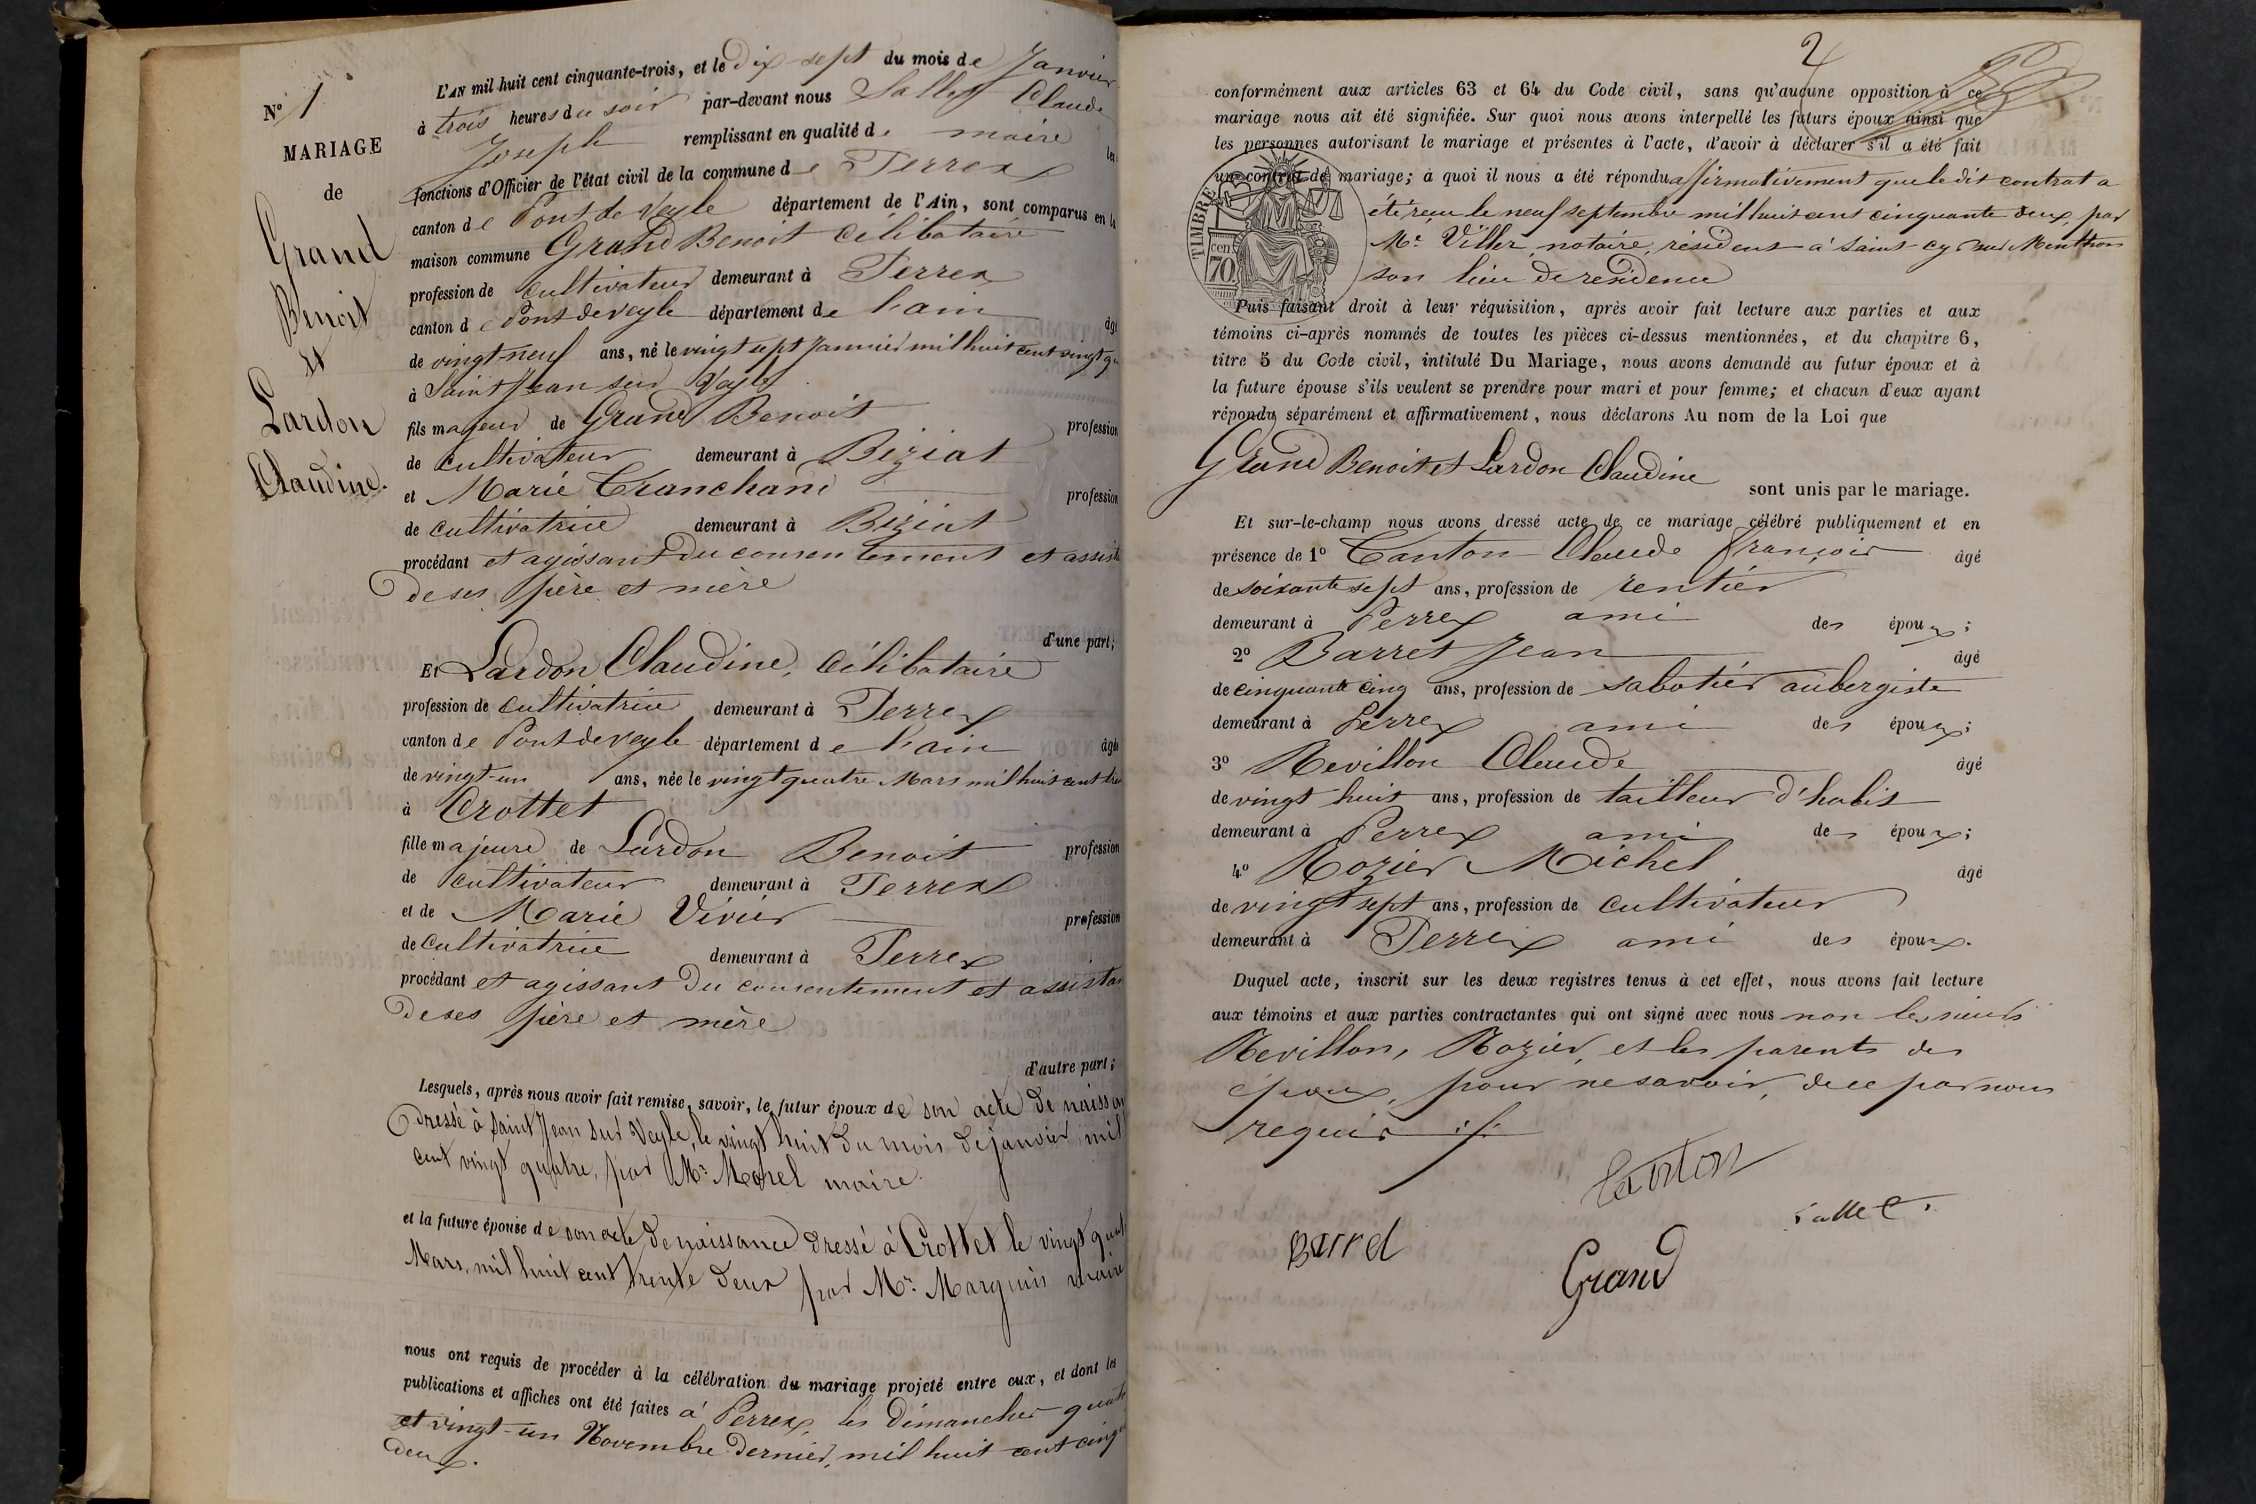 N° 1
MARIAGE
de
Grand
Benoit
et
Lardon
Claudine.
L'AN mil huit cent cinquante-trois, et le Dix sept du mois de Janvier
à trois heures du soir par-devant nous Sallet Claude
Joseph remplissant en qualité de maire les
fonctions d'Officier de l'état civil de la commune de Perrex
canton de Pont de Veyle département de l'Ain, sont comparus en la
maison commune Grand Benoit célibataire
profession de cultivateur demeurant à Perrex
canton de Pont de veyle département de l'ain âgé
de vingt-neuf ans, né le vingt sept Janvier mil huit cent vingt
à Saint Jean sur Veyle
fils majeur de Grand Benoit profession
de cultivateur demeurant à Biziat
et Marie Tranchand profession
de cultivatrice demeurant à Biziat
procédant et agissant du consentement et
De ses père et mère
d'une part;
Et Lardon Claudine, célibataire
profession de cultivatrice demeurant à Perrex
canton de Pont de veyle département de l'ain âgée
de vingt-un ans, née le vingt quatre Mars mil huit cent
à Crottet
fille majeure de Lardon Benoit profession
de cultivateur demeurant à Perrex
et de Marie Vivier profession
de cultivatrice demeurant à Perrex
procédant et agissant du consentement et
De ses père et mère
d'autre part;
Lesquels, après nous avoir fait remise, savoir, le futur époux de son acte de
dressé à Saint Jean sur Veyle, le vingt huit du mois de janvier mil
cent vingt quatre, par Mr Morel maire.
et la future épouse de son acte de naissance dressé à Crottet le vingt
Mars, mil huit cent trente deux par Mr. Marguin maire
nous ont requis de procéder à la célébration du mariage projeté entre eux, et dont les
publications et affiches ont été faites à Perrex, les Dimanches
et vingt-un Novembre dernier, mil huit cent
deux.
2
conformément aux articles 63 et 64 du Code civil, sans qu'aucune opposition à ce
mariage nous ait été signifiée. Sur quoi nous avons interpellé les futurs époux ainsi que
les personnes autorisant le mariage et présentes à l'acte, d'avoir à déclarer s'il a été fait
un contrat de mariage; à quoi il nous a été répondu affirmativement que le dit contrat a
été reçu le neuf septembre mil huit cent cinquante deux, par
Me. Viller, notaire, résident à Saint-cyr sur Menthon
son lieu de residence
TIMBRE
cen
70
Puis faisant droit à leur réquisition, après avoir fait lecture aux parties et aux
témoins ci-après nommés de toutes les pièces ci-dessus mentionnées, et du chapitre 6,
titre 5 du Code civil, intitulé Du Mariage, nous avons demandé au futur époux et à
la future épouse s'ils veulent se prendre pour mari et pour femme; et chacun d'eux ayant
répondu séparément et affirmativement, nous déclarons Au nom de la Loi que
Grand Benoit et Lardon Claudine
sont unis par le mariage.
Et sur-le-champ nous avons dressé acte de ce mariage célébré publiquement et en
présence de 1° Canton Claude françois âgé
de soixante sept ans, profession de rentier
demeurant à Perrex ami des époux;
2° Barret Jean âgé
de cinquante cinq ans, profession de sabotier aubergiste
demeurant à Perrex ami des époux;
3° Revillon Claude âgé
de vingt huit ans, profession de tailleur d'habit
demeurant à Perrex ami des époux;
4° Rozier Michel âgé
de vingt sept ans, profession de cultivateur
demeurant à Perrex ami des époux.
Duquel acte, inscrit sur les deux registres tenus à cet effet, nous avons fait lecture
aux témoins et aux parties contractantes qui ont signé avec nous non les sieurs
Revillon, Rozier, et les parents des
époux, pour ne savoir, de ce par nous
requis ./.
Canton
Sallet
Barret
Grand